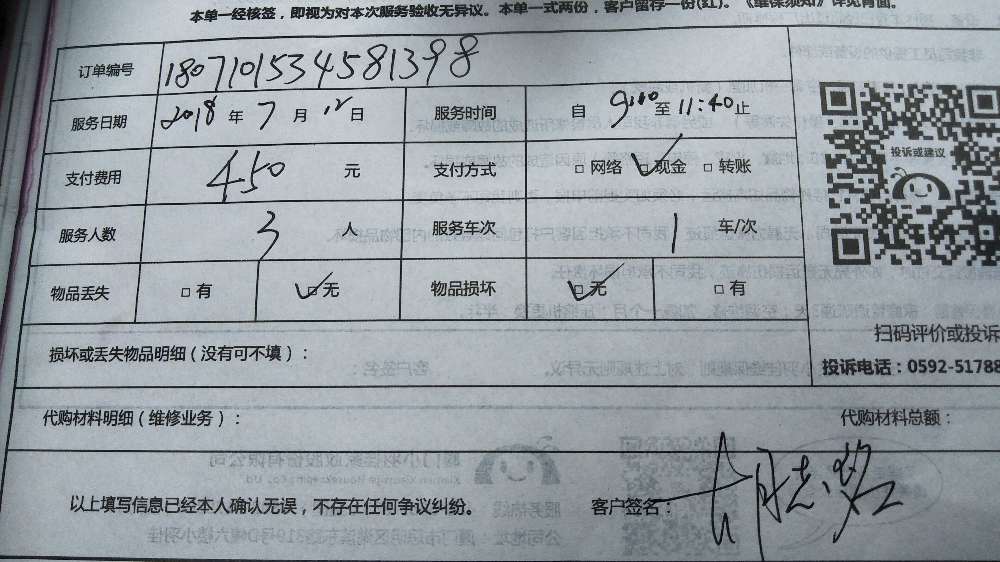 本单一经核签，即视为对本次服务验收无异议。本单一式两份，客户留存一份(红)。《维保须知》详见背面。
订单编号 1807101534581398
服务日期 2018 年 7 月 12 日 服务时间 自 9:00 至 11:40 止
支付费用 450 元 支付方式 □ 网络 ☑ 现金 □ 转账
服务人数 3 人 服务车次 1 车/次
物品丢失 □ 有 ☑ 无 物品损坏 ☑ 无 □ 有
投诉或建议
扫码评价或投诉
投诉电话：0592-51788
损坏或丢失物品明细（没有可不填）：
代购材料明细（维修业务）： 代购材料总额：
以上填写信息已经本人确认无误，不存在任何争议纠纷。 客户签名：